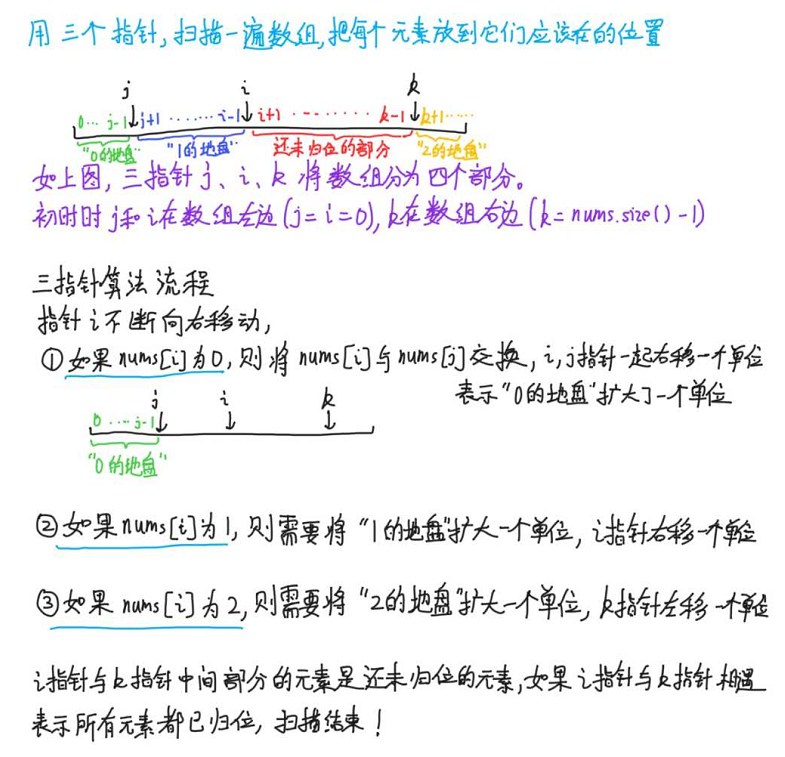 用三个指针,扫描一遍数组,把每个元素放到它们应该在的位置
j i k
0··· j-1 j+1 ······· i-1 i+1 ········ k-1 k+1······
"0的地盘" "1的地盘" 还未归位的部分 "2的地盘"
如上图,三指针j、i、k将数组分为四个部分。
初时时j和i在数组左边(j=i=0),k在数组右边(k=nums.size()-1)
三指针算法流程
指针i不断向右移动,
①如果nums[i]为0,则将nums[i]与nums[j]交换,i,j指针一起右移一个单位
表示"0的地盘"扩大了一个单位
j i k
0 ···· j-1
"0的地盘"
②如果nums[i]为1,则需要将"1的地盘"扩大一个单位,i指针右移一个单位
③如果nums[i]为2,则需要将"2的地盘"扩大一个单位,k指针左移一个单位
i指针与k指针中间部分的元素是还未归位的元素,如果i指针与k指针相遇
表示所有元素都已归位,扫描结束!